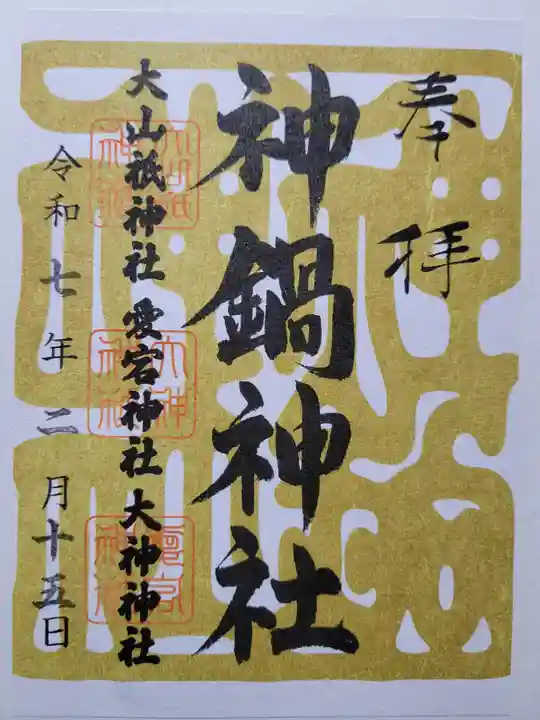 奉拝
神鍋神社
大山祇神社 愛宕神社 大神神社
令和七年二月十五日